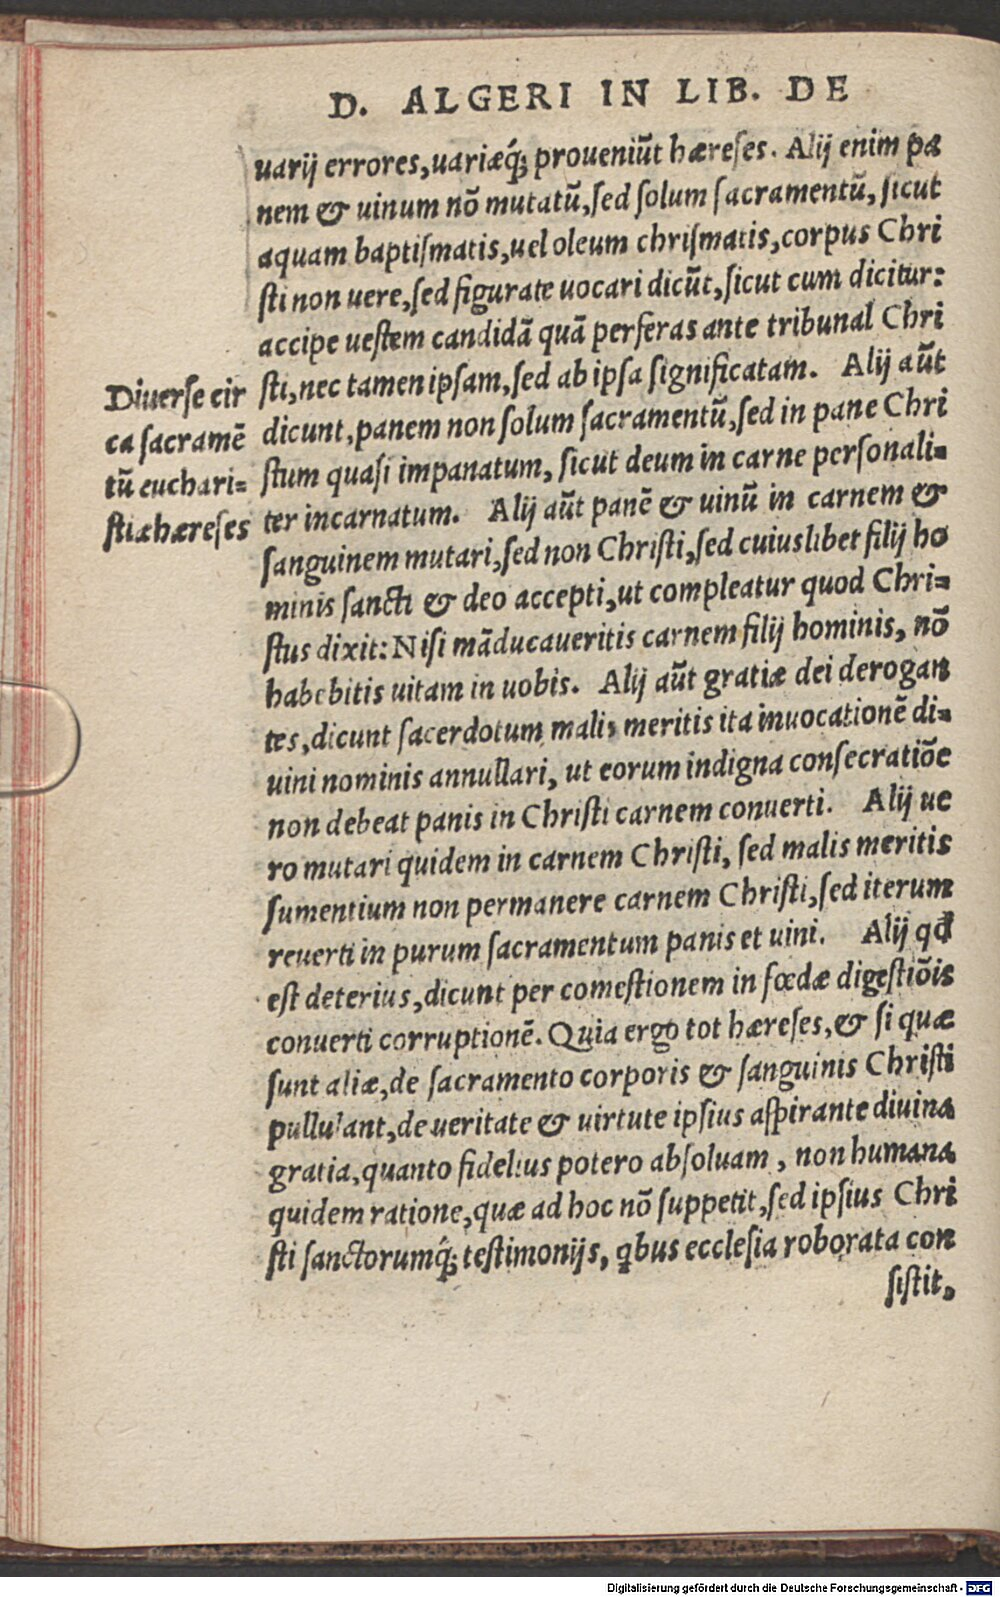 D. ALGERI IN LIB. DE
uarij errores, uariæq́; proueniũt hæreses. Alij enim pa
nem & uinum nõ mutatũ, sed solum sacramentũ, sicut
aquam baptismatis, uel oleum chrismatis, corpus Chri
sti non uere, sed figurate uocari dicũt, sicut cum dicitur:
accipe uestem candidã quã perferas ante tribunal Chri
sti, nec tamen ipsam, sed ab ipsa significatam. Alij aũt
dicunt, panem non solum sacramentũ, sed in pane Chri
stum quasi impanatum, sicut deum in carne personali=
ter incarnatum. Alij aũt panẽ & uinũ in carnem &
sanguinem mutari, sed non Christi, sed cuiuslibet filij ho
minis sancti & deo accepti, ut compleatur quod Chri=
stus dixit: Nisi mãducaueritis carnem filij hominis, nõ
habebitis uitam in uobis. Alij aũt gratiæ dei derogan
tes, dicunt sacerdotum malis meritis ita inuocationẽ di=
uini nominis annullari, ut eorum indigna consecratiõe
non debeat panis in Christi carnem conuerti. Alij ue
ro mutari quidem in carnem Christi, sed malis meritis
sumentium non permanere carnem Christi, sed iterum
reuerti in purum sacramentum panis et uini. Alij qd
est deterius, dicunt per comestionem in fœdæ digestiõis
conuerti corruptionẽ. Quia ergo tot hæreses, & si quæ
sunt aliæ, de sacramento corporis & sanguinis Christi
pullulant, de ueritate & uirtute ipsius aspirante diuina
gratia, quanto fidelius potero absoluam, non humana
quidem ratione, quæ ad hoc nõ suppetit, sed ipsius Chri
sti sanctorumq́; testimonijs, qbus ecclesia roborata con
sistit,
Diuerse cir
ca sacramẽ
tũ euchari=
stiæ hæreses
Digitalisierung gefördert durch die Deutsche Forschungsgemeinschaft - DFG